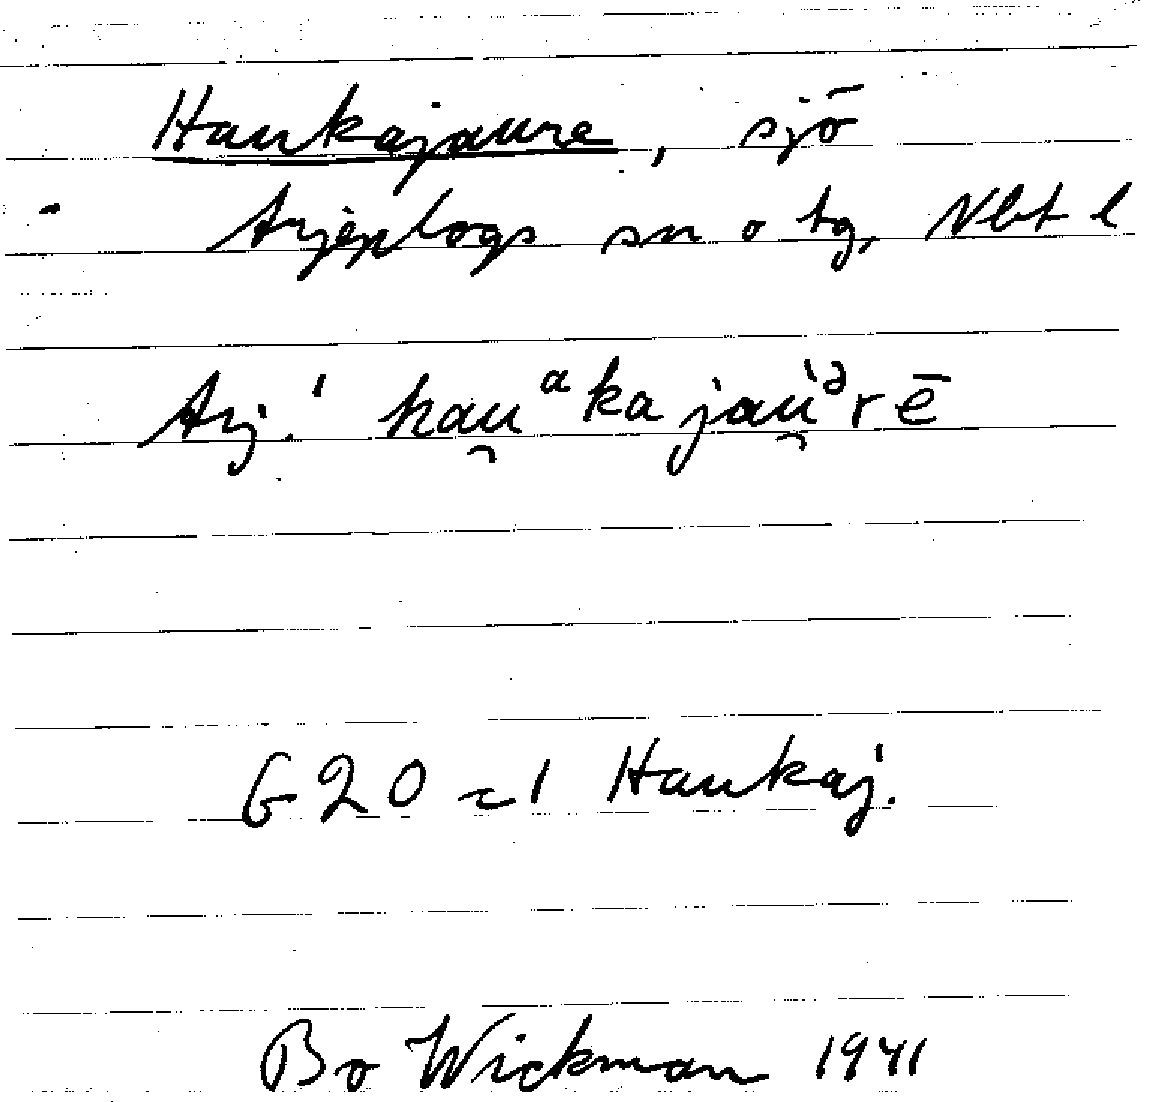 Haukajaure, sjö
Arjeplogs sn o tg, Nbt l
Arj.' hau̯ᵃkajaù̯ᵊrē
G20 ~1 Haukaj.
Bo Wickman 1941